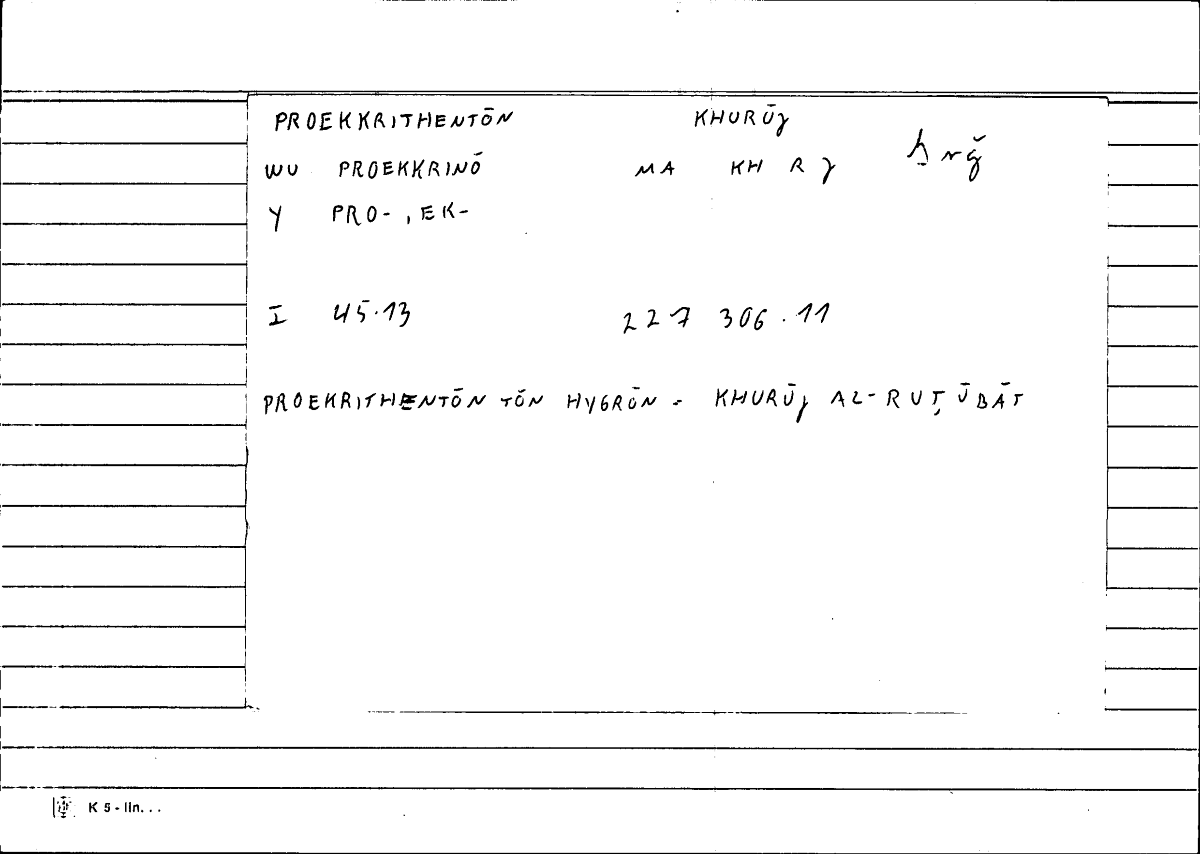 PROEKKRITHENTŌN KHURŪJ
WU PROEKKRINŌ MA KH R J ḫrǧ
Y PRO-, EK-
I 45.13 227 306.11
PROEKRITHENTŌN TŌN HYGRŌN = KHURŪJ AL-RUṬŪBĀT
K 5 - lin...